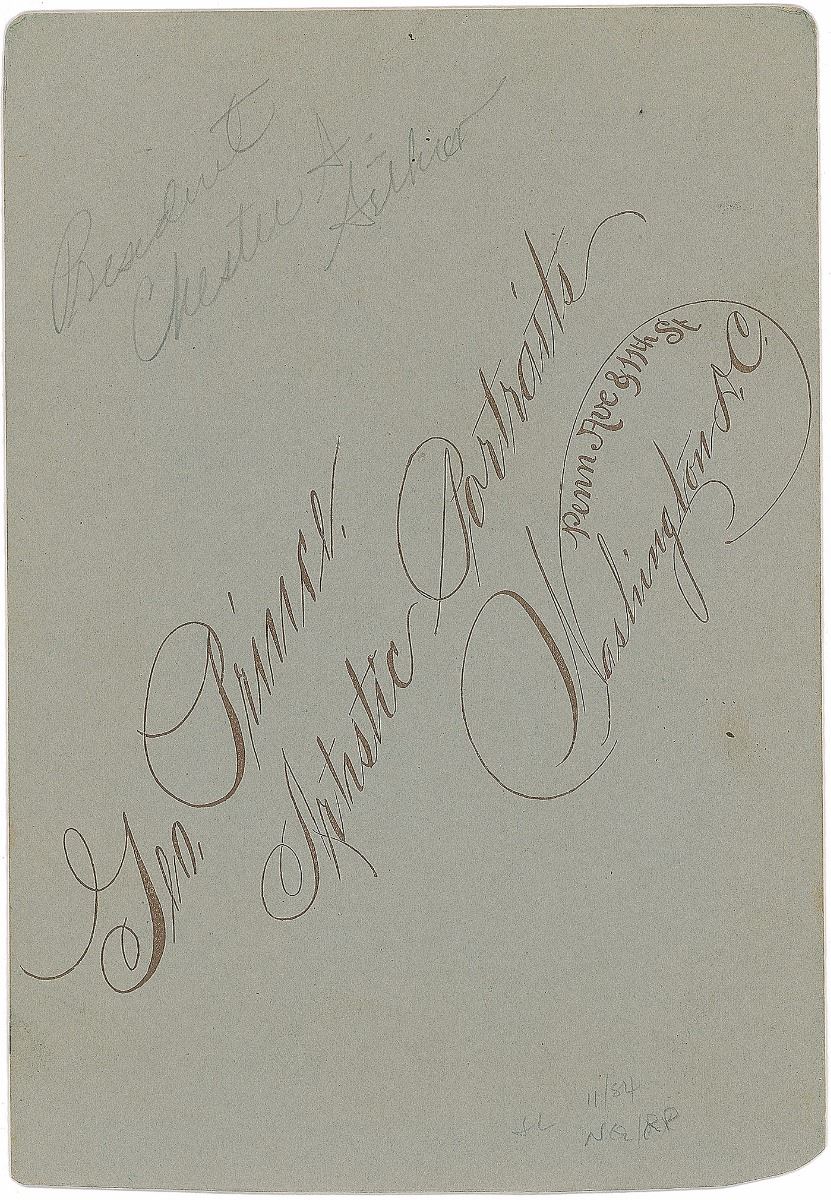 President
Chester A.
Arthur
Geo. Prince.
Artistic Portraits
Penn Ave & 11th St
Washington D.C.
11/84